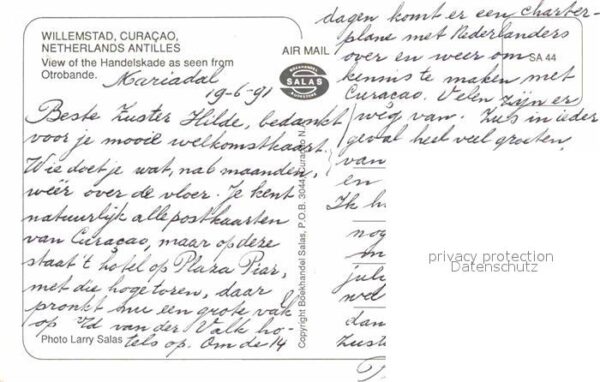 WILLEMSTAD, CURAÇAO,
NETHERLANDS ANTILLES
View of the Handelskade as seen from
Otrobande.
AIR MAIL
BOEKHANDEL
SALAS
SA 44
Mariadal
19-6-91
Beste Zuster Hilde, bedankt
voor je mooie welkomstkaart.
Wie doet je wat, na 6 maanden,
weer over de vloer. Je kent
natuurlijk alle postkaarten
van Curaçao, maar op deze
staat 't hotel op Plaza Piar,
met die hoge toren, daar
pronkt nu een grote valk
op. Vd van der Valk ho-
tels op. Om de 14
dagen komt er een charter-
plane met Nederlanders
over en weer om
kennis te maken met
Curaçao. Velen zijn er
weg van. Zus in ieder
geval heel veel groeten,
van
en
Ik h
nog
m
jule
wel
dan
Zust
Photo Larry Salas
Copyright Boekhandel Salas, P.O.B. 3044, Curacao N.
privacy protection
Datenschutz